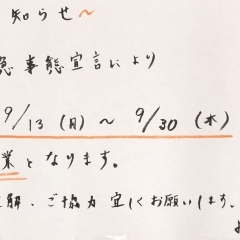 知らせ～
急事態宣言により
9/13（月）～ 9/30（木）
業となります。
理解、ご協力宜しくお願いします。
お